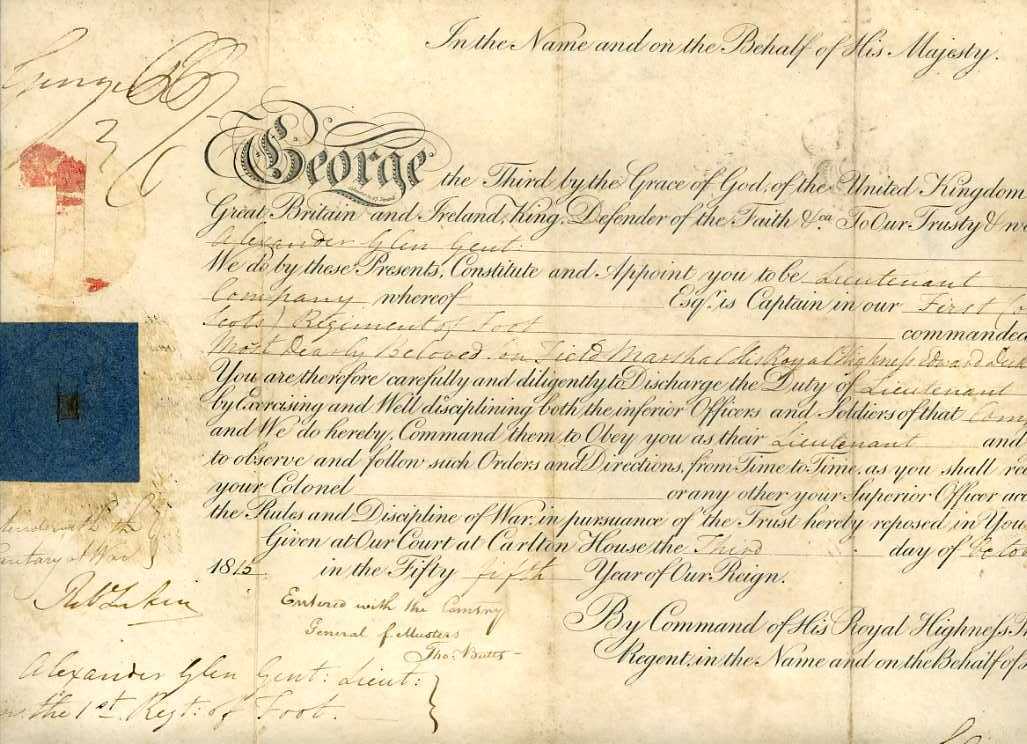 In the Name and on the Behalf of His Majesty.
George P R
George the Third by the Grace of God, of the United Kingdom
Great Britain and Ireland, King, Defender of the Faith &ca. To Our Trusty & we
Alexander Glen Gent:
We do by these Presents, Constitute and Appoint you to be Lieutenant
Company whereof Esqr. is Captain in our First (
Scots) Regiment of Foot commanded
Most Dearly Beloved Son Field Marshal His Royal Highneſs Edward Duk
You are therefore carefully and diligently to Discharge the Duty of Lieutenant
by Exercising and Well disciplining both the inferior Officers and Soldiers of that Com
and We do hereby Command them to Obey you as their Lieutenant and
to observe and follow such Orders and Directions, from Time to Time, as you shall rec
your Colonel or any other your Superior Officer acc
the Rules and Discipline of War, in pursuance of the Trust hereby reposed in You
Given at Our Court at Carlton House the Third day of Octo
1815 in the Fifty fifth Year of Our Reign.
Entered with the Comsry
General of Musters
Thos. Butts
By Command of His Royal Highneſs Th
Regent, in the Name and on the Behalf of
at War
Alexander Glen Gent: Lieut:
in the 1st Regt: of Foot.